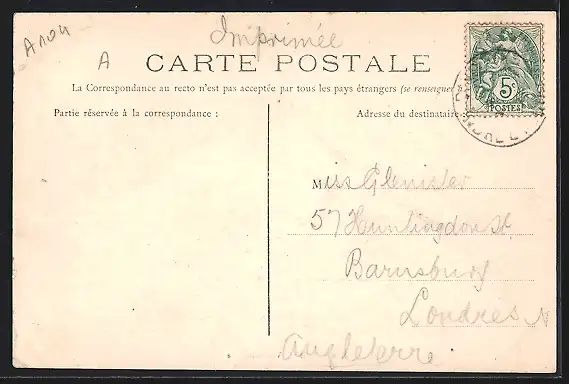 A104
Imprimée
A
CARTE POSTALE
La Correspondance au recto n'est pas acceptée par tous les pays étrangers (se renseigner à
Partie réservée à la correspondance :
Adresse du destinataire
5c
POSTES
Miss Glenister
57 Huntingdon St.
Barnsbury
Londres N
Angleterre